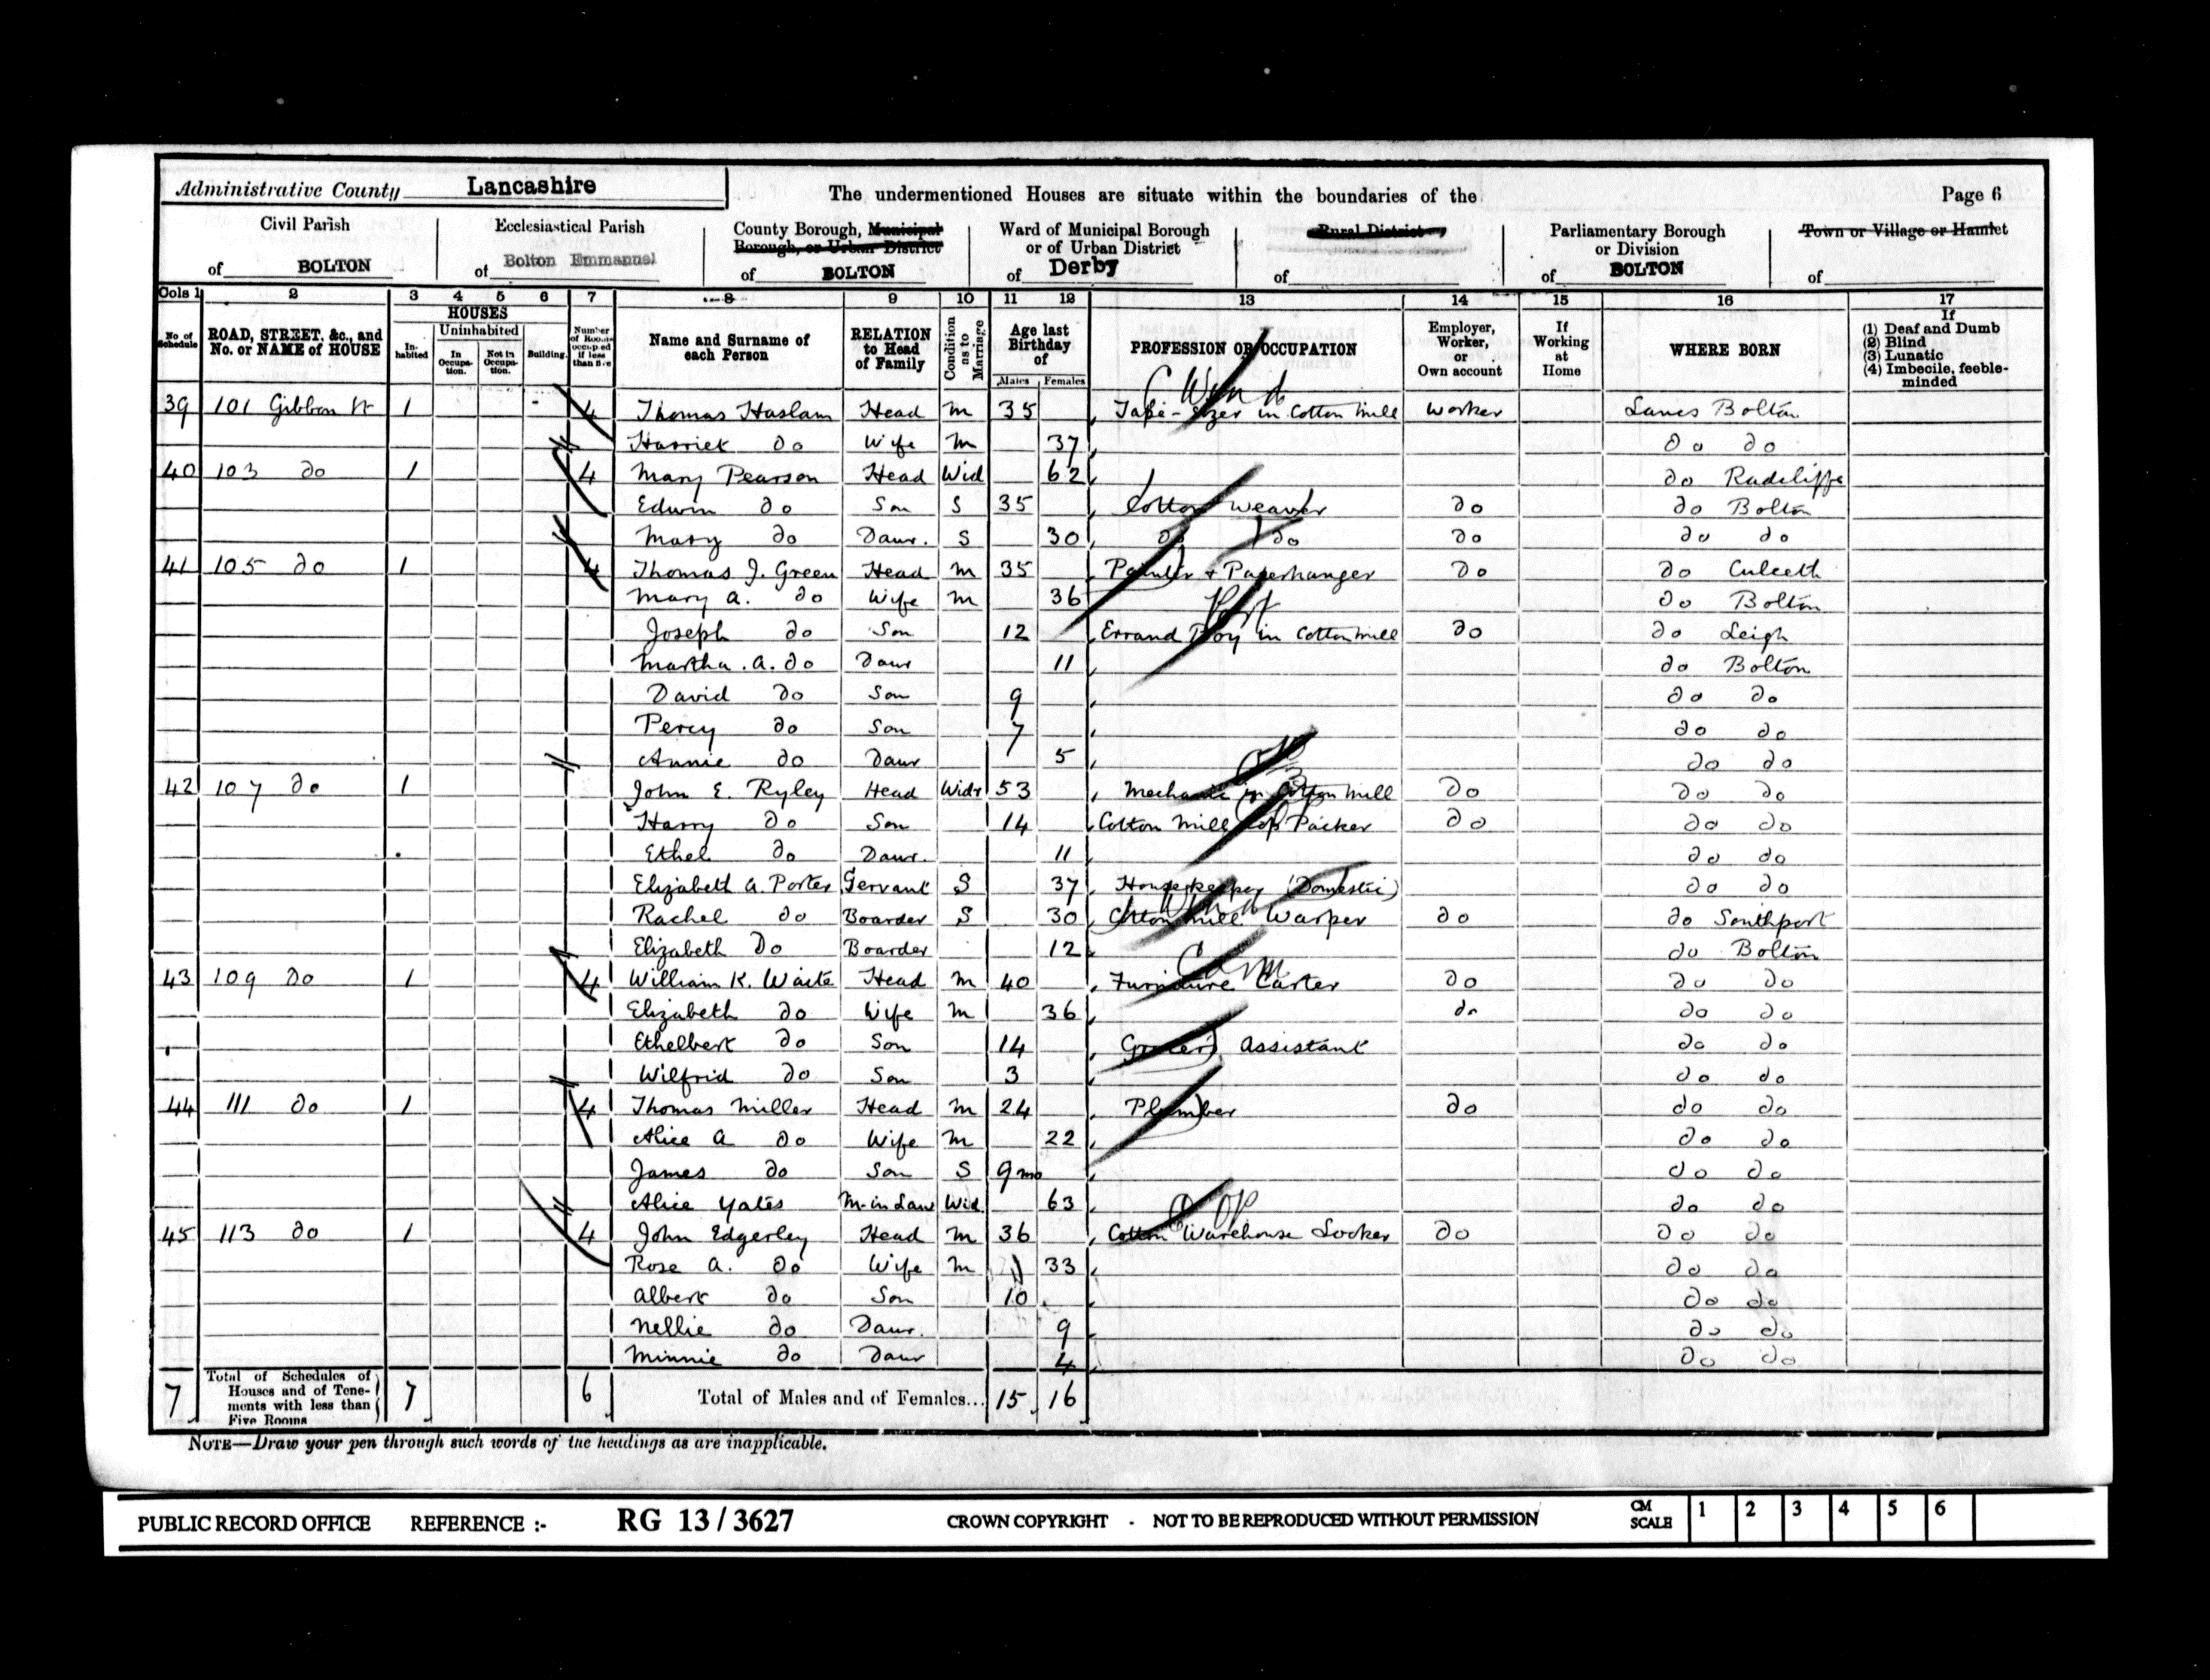 Administrative County Lancashire The undermentioned Houses are situate within the boundaries of the Page 6
Civil Parish of BOLTON
Ecclesiastical Parish of Bolton Emmanuel
County Borough, Municipal Borough, or Urban District of BOLTON
Ward of Municipal Borough or of Urban District of Derby
Rural District of
Parliamentary Borough or Division of BOLTON
Town or Village or Hamlet of
Cols 1 2 3 4 5 6 7 8 9 10 11 12 13 14 15 16 17
No of Schedule
ROAD, STREET, &c., and No. or NAME of HOUSE
HOUSES
Inhabited
Uninhabited
In Occupation.
Not in Occupation.
Building.
Number of Rooms occupied if less than five
Name and Surname of each Person
RELATION to Head of Family
Condition as to Marriage
Age last Birthday of
Males Females
PROFESSION OR OCCUPATION
Employer, Worker, or Own account
If Working at Home
WHERE BORN
If
(1) Deaf and Dumb
(2) Blind
(3) Lunatic
(4) Imbecile, feeble-minded
39 101 Gibbon St 1 4 Thomas Haslam Head M 35 Tape-Sizer in Cotton Mill Worker Lancs Bolton
Harriet do Wife M 37 do do
40 103 do 1 4 Mary Pearson Head Wid 62 do Radcliffe
Edwin do Son S 35 Cotton Weaver do do Bolton
Mary do Daur. S 30 do do do do do
41 105 do 1 4 Thomas J. Green Head M 35 Painter & Paperhanger do do Culceth
Mary A. do Wife M 36 do Bolton
Joseph do Son 12 Errand Boy in Cotton Mill do do Leigh
Martha. A. do Daur 11 do Bolton
David do Son 9 do do
Percy do Son 7 do do
Annie do Daur 5 do do
42 107 do 1 John E. Ryley Head Widr 53 Mechanic in Cotton Mill do do do
Harry do Son 14 Cotton Mill Cop Packer do do do
Ethel do Daur. 11 do do
Elizabeth A. Porter Servant S 37 Housekeeper (Domestic) do do
Rachel do Boarder S 30 Cotton Mill Warper do do Southport
Elizabeth Do Boarder 12 do Bolton
43 109 do 1 4 William K. Waite Head M 40 Furniture Carter do do do
Elizabeth do Wife M 36 do do do
Ethelbert do Son 14 Grocers Assistant do do
Wilfrid do Son 3 do do
44 111 do 1 4 Thomas Miller Head M 24 Plumber do do do
Alice A do Wife M 22 do do
James do Son S 9mo do do
Alice Yates M-in Law Wid. 63 do do
45 113 do 1 4 John Edgerley Head M 36 Cotton Warehouse Looker do do do
Rose A. do Wife M 33 do do
Albert do Son 10 do do
Nellie do Daur. 9 do do
Minnie do Daur 4 do do
7 Total of Schedules of Houses and of Tenements with less than Five Rooms 7 6 Total of Males and of Females... 15 16
NOTE—Draw your pen through such words of the headings as are inapplicable.
PUBLIC RECORD OFFICE REFERENCE :- RG 13/3627 CROWN COPYRIGHT - NOT TO BE REPRODUCED WITHOUT PERMISSION CM SCALE 1 2 3 4 5 6